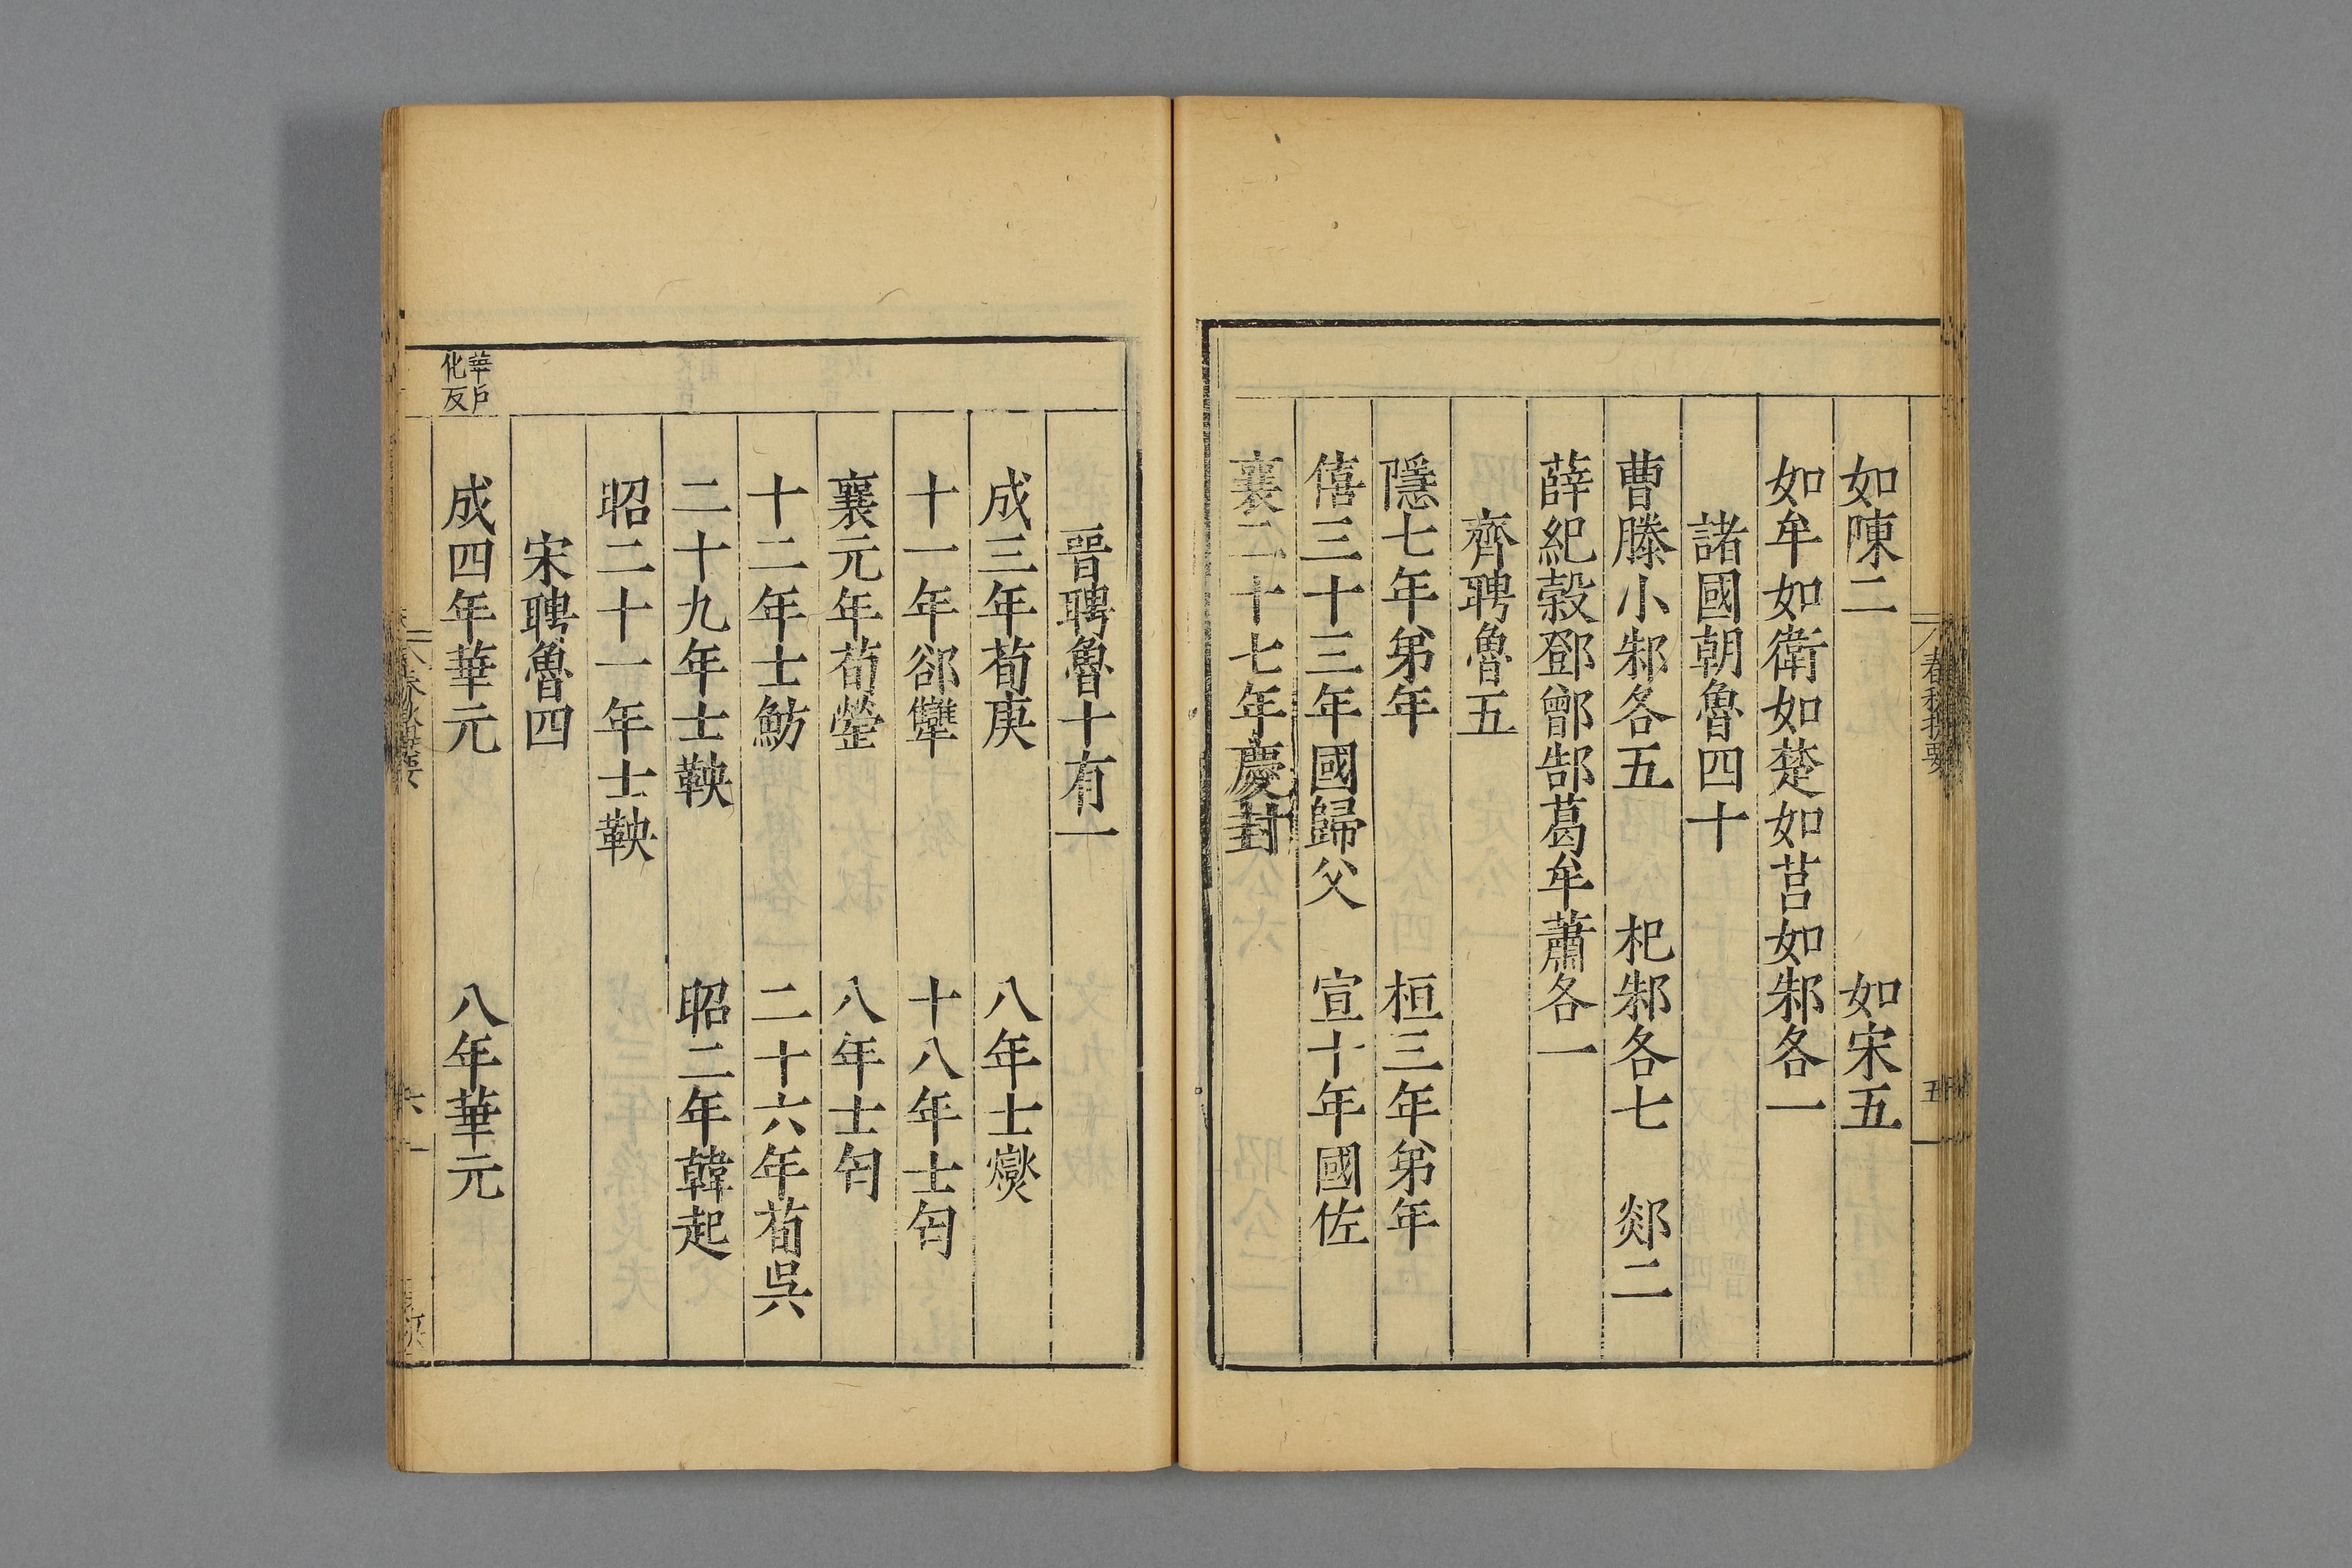 如陳二　如宋五
如牟如衛如楚如莒如邾各一
諸國朝魯四十
曹滕小邾各五　杞邾各七　郯二
薛紀穀鄧鄫郜葛牟蕭各一
齊聘魯五
隱七年弟年　桓三年弟年
僖三十三年國歸父　宣十年國佐
襄二十七年慶封
春秋提要
五
晉聘魯十有一
成三年荀庚　八年士燮
十一年郤犫　十八年士匄
襄元年荀罃　八年士匄
十二年士魴　二十六年荀吳
二十九年士鞅　昭二年韓起
昭二十一年士鞅
宋聘魯四
華戶化反
成四年華元　八年華元
春秋提要
六